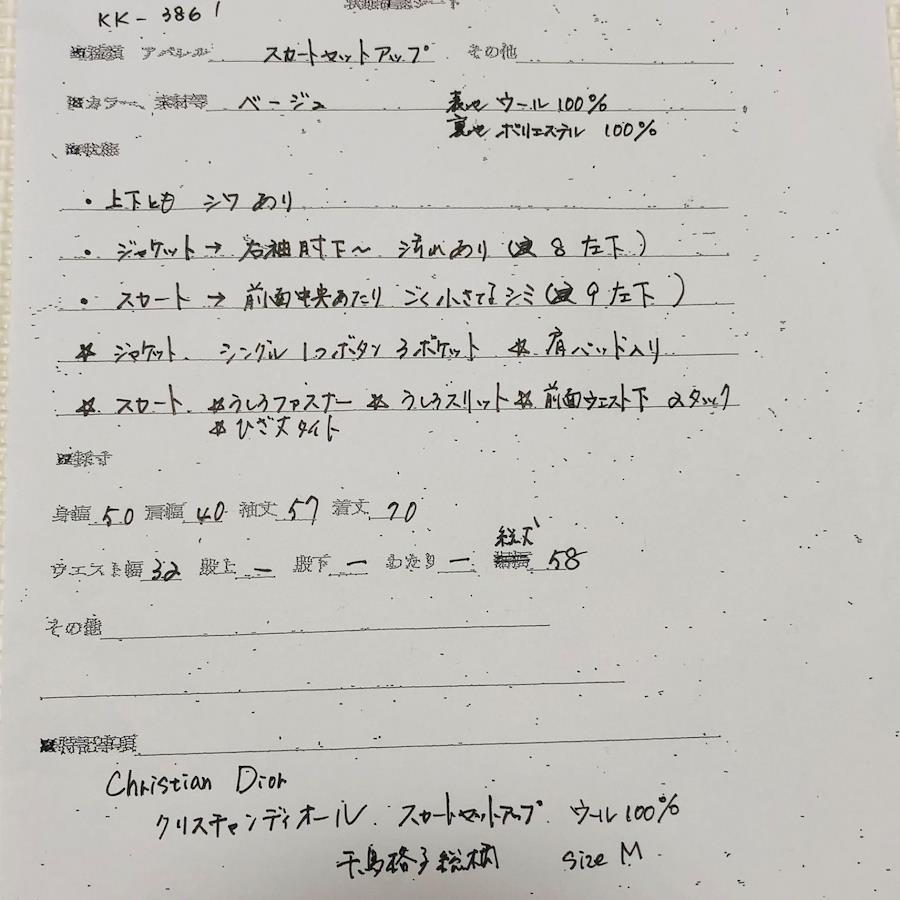 KK-3861
状態確認シート
■種類 アパレル スカートセットアップ その他
■カラー、素材等 ベージュ 表地 ウール100%
裏地 ポリエステル 100%
■状態
・上下とも シワ あり
・ジャケット→ 右袖肘下〜 流れあり(図8 左下)
・スカート → 前面中央あたり ごく小さなシミ(図9 左下)
☆ ジャケット. シングル 1つボタン 3ポケット ☆ 肩パッド入り
☆ スカート. ☆うしろファスナー ☆ うしろスリット ☆ 前面ウエスト下 2タック
☆ ひざ丈タイト
■採寸
身幅 50 肩幅 40 袖丈 57 着丈 70
総丈
ウエスト幅 32 股上 ー 股下 ー わたり ー 58
その他
■特記事項
Christian Dior
クリスチャンディオール. スカートセットアップ. ウール100%
千鳥格子総柄 size M